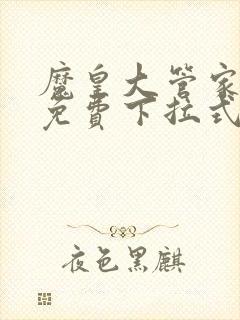 魔皇大管家
免費下拉式
夜色黑麒